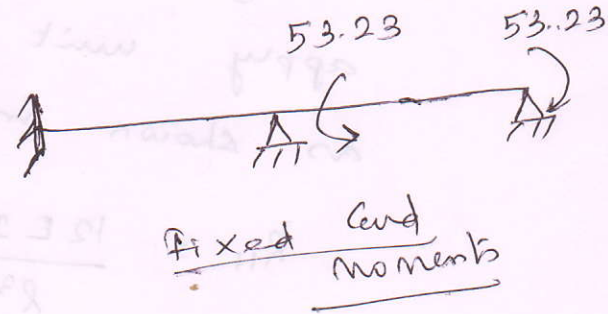 53.23 53..23
Fixed end
moments